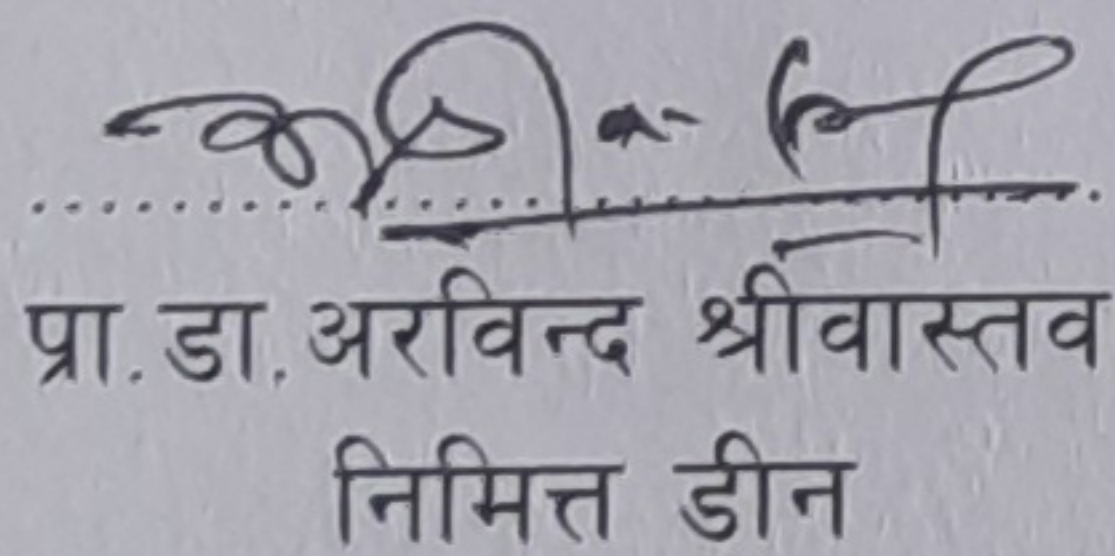 प्रा.डा.अरविन्द श्रीवास्तव
निमित्त डीन